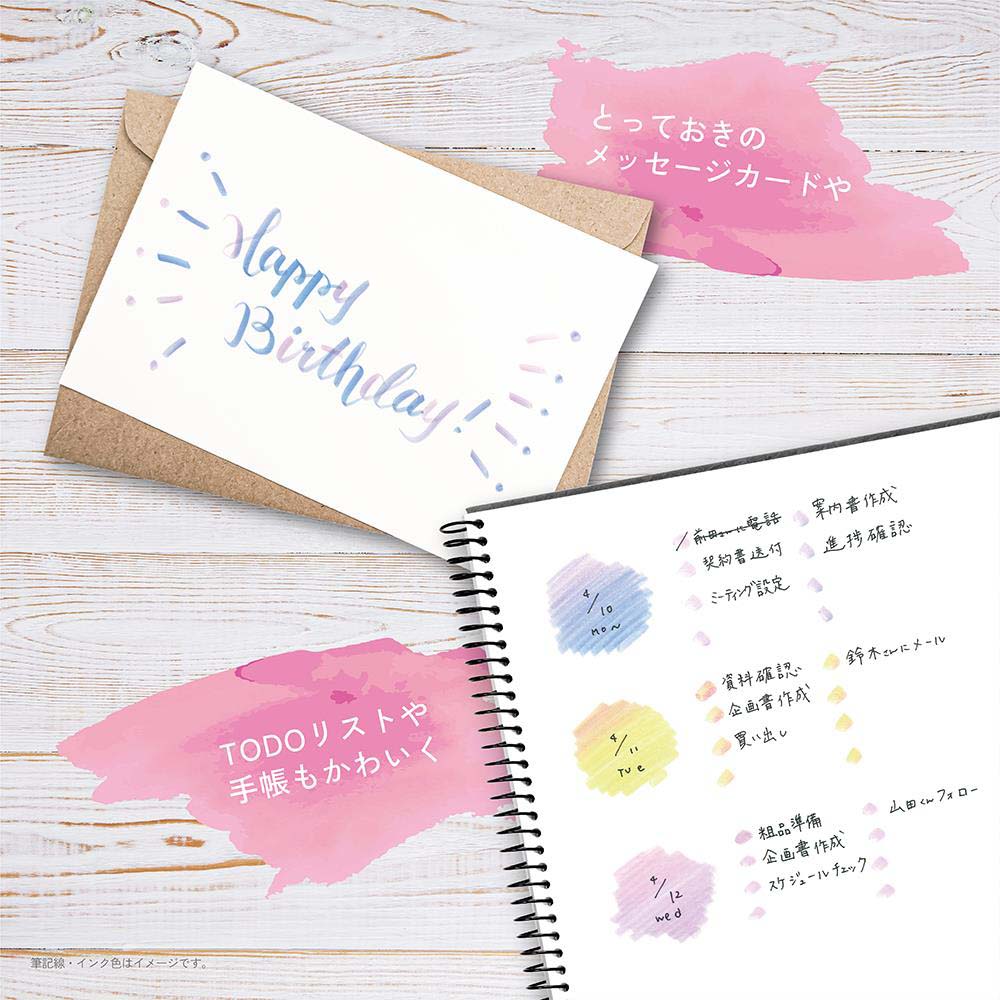 とっておきの
メッセージカードや
Happy
Birthday!
4/10
Mon
前田さんに電話
契約書送付
ミーティング設定
案内書作成
進捗確認
TODOリストや
手帳もかわいく
4/11
Tue
資料確認
企画書作成
買い出し
鈴木さんにメール
4/12
wed
粗品準備
企画書作成
スケジュールチェック
山田くんフォロー
筆記線・インク色はイメージです。